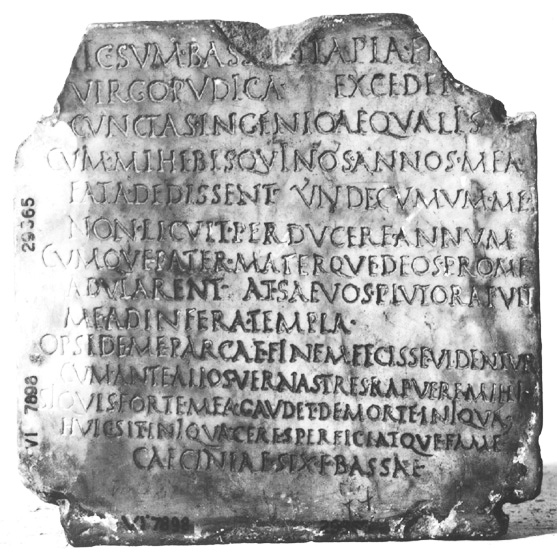 IC·SVM·BASS PIA·
VIRGO PVDICA EXCEDE
CVNCTAS INGENIO AEQVALES
CVM·MIHI BIS QVINOS ANNOS·MEA·
FATA DEDISSENT VNDECVMVM·ME
NON·LICVIT·PERDVCERE ANNVM
CVMQVE PATER·MATERQVE DEOS·PRO ME
ADVLARENT· AT·SAEVOS·PLVTO RAPVIT
ME AD INFERA·TEMPLA·
OPSIDE ME PARCAE·FINEM·FECISSE VIDENTVR
CVM ANTE ALIOS·VERNAS TRES RAPVERE MIHI·
SI QVIS FORTE MEA·GAVDET·DE MORTE INIQVA
HVIC SIT INIQVA CERES PERFICIATQVE FAME
CAECINIAE·SEX·F·BASSAE
29365
VI 7898
VI 7898